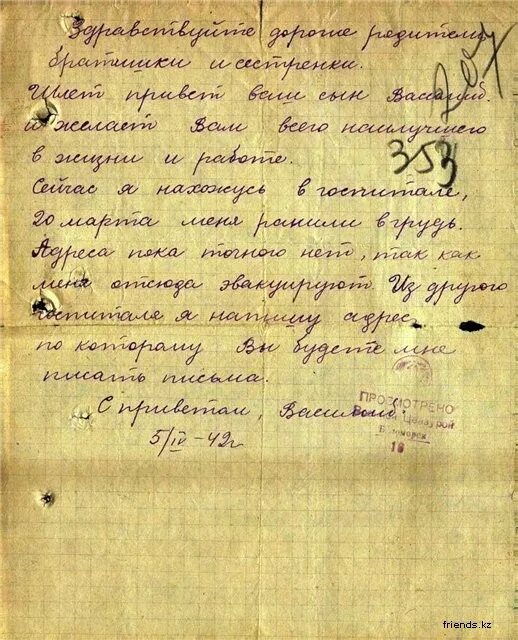 Здравствуйте дорогие родители
братишки и сестренки.
Шлет привет ваш сын Василий.
и желает Вам всего наилучшего
в жизни и работе.
353
Сейчас я нахожусь в госпитале,
20 марта меня ранили в грудь.
Адреса пока точного нет, так как
меня отсюда эвакуируют. Из другого
госпиталя я напишу адрес,
по которому Вы будете мне
писать письма.
С приветом, Василий.
5/IV-42г
ПРОСМОТРЕНО
Военной Цензурой
16
friends.kz